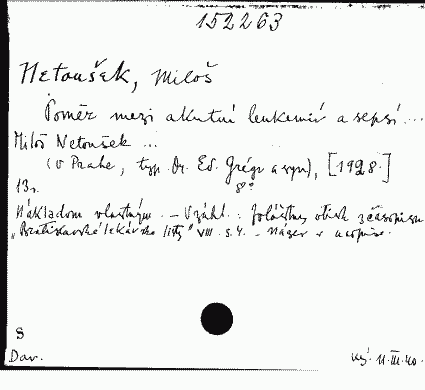 152263
Netoušek, Miloš
Poměr mezi akutní leukemií a sepsí...
Miloš Netoušek ...
(V Praze, typ. Dr. Ed. Grégr a syn), [1928.]
13 s. 8°
Nákladom vlastným. – Zvlášt. otisk z časopisu
„Bratislavské lekárske listy" VIII. s. 4. – Název v
8
Dar. 11.III.40.